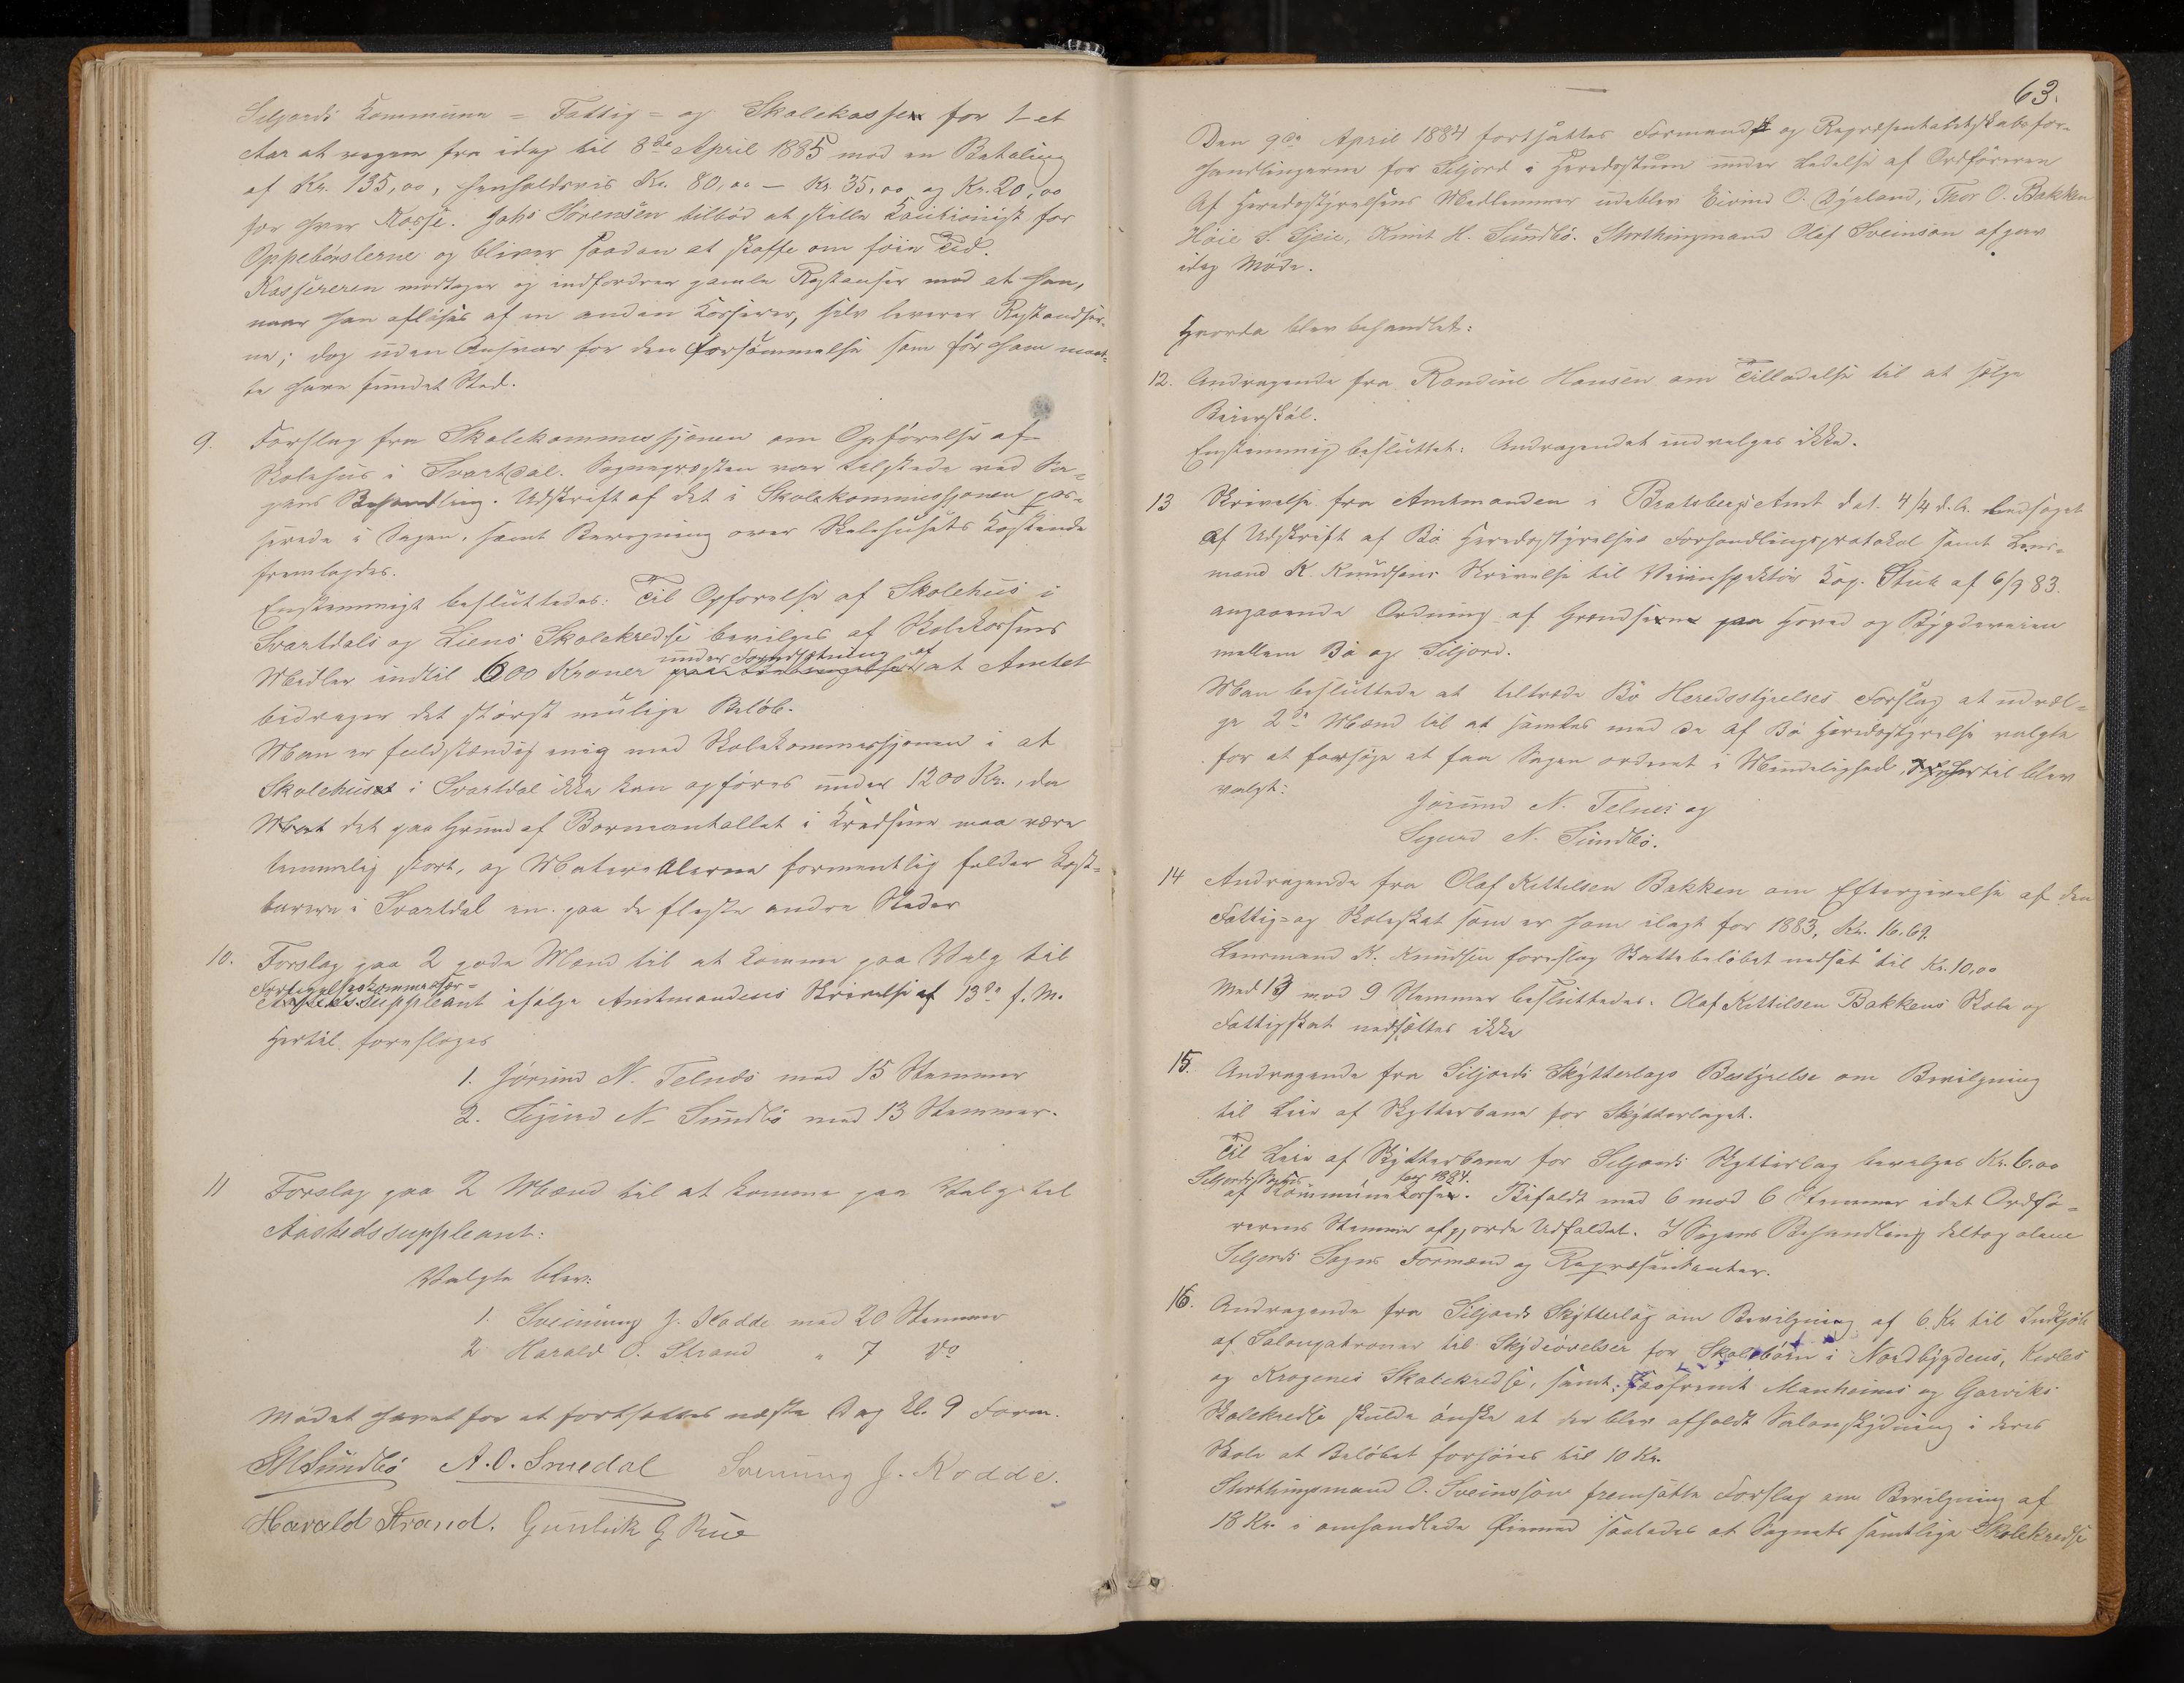 Seljords Kommune = Fattig = og Skolekasser for 1 et
Aar at regne fra idag til 8de April 1885 mod en Betaling
af Kr. 135,00, henholdsvis Kr. 80,00 – Kr. 35,00 og Kr. 20,00
for hver Kasse. Johs Sørensen tilbød at stille Kautionist for
Oppebørslerne og bliver saadan at skaffe om føie Tid.
Kassereren modtager og indfordrer gamle Restanser mod at han,
naar han afløses af en anden Kasserer, selv leverer Restandser-
ne; dog uden Ansvar for den Forsømmelse som før ham maat-
te have fundet Sted.
9. Forslag fra Skolekommissjonen om Opførelse af
Skolehus i Svartdal. Sognepresten var tilstede ved Sa-
gens Behandling. Udskrift af det i Skolekommissjonen pas-
serede i Sagen, samt Beregning over Skolehusets Kostende
fremlagdes.
Enstemmigt besluttedes: Til Opførelse af Skolehus i
Svartdals og Liens Skolekredse bevilges af Skolekassens
under Forudsætning af
Midler indtil 600 Kroner at Amtet
bidrager det størst mulige Beløb.
Man er fuldstændig enig med Skolekommissjonen i at
Skolehuset i Svartdal ikke kan opføres under 1200 Kr., da
det paa Grund af Barneantallet i Kredsene maa være
temmelig stort, og Materialerne formentlig falder kost-
barere i Svartdal en paa de fleste andre Steder
10. Forslag paa 2 gode Mænd til at komme paa Valg til
suppleant ifølge Amtmandens Skrivelse af 13de f. M.
Hertil foresloges
1. Jørund N. Telnes med 15 Stemmer
2. Sigurd N. Sundbö med 13 Stemmer.
11 Forslag paa 2 Mænd til at komme paa Valg til
Aastedssuppleant:
Valgte blev:
1. Sveinung J. Kodde med 20 Stemmer
2 Harald O. Strand " 7 do
Mødet hævet for at fortsættes næste Dag Kl. 9 Form.
Sundbö A. O. Smedal Sveinung J. Kodde.
Harald Strand. Gunleik G Rue
63.
Den 9de April 1884 fortsattes Formands og Repræsentantskabsfor-
handlingerne for Seljord i Heredostuen under Ledelse af Ordføreren
Af Heredsstyrelsens Medlemmer udeblev Eivind O. Dyrland, Thor O. Bakken
Høie S. Gjeie, Knut H. Sundbö. Storthingsmand Olaf Sveinson afgav
idag Møde.
Hvorda blev behandlet:
12. Andragende fra Randine Hansen om Tilladelse til at sælge
Beierskøl.
Enstemmig besluttet: Andragendet indvilges ikke.
13 Skrivelse fra Amtmanden i Bratsberg Amt dat. 4/4 d. A. ledsaget
af Udskrift af Bø Heredsstyrelses Forhandlingsprotokol samt Lens-
mand K. Knudsens Skrivelse til Veiinspektør Kap. Stub af 6/9 83.
angaaende Ordning af Grændserne paa Hoved og Bygdeveien
mellem Bø og Siljord.
Man besluttede at tiltræde Bø Heredsstyrelses Forslag at udvæl-
ge 2de Mænd til at samles med de af Bø Heredsstyrelse valgte
for at forsøge at faa Sagen ordnet i Mindelighed, hertil blev
valgt:
Jørund N. Telnes og
Sigurd N. Sundbö.
14 Andragende fra Olaf Kittilsen Bakken om Eftergivelse af den
Fattig- og Skoleskat som er ham ilagt for 1883, Kr. 16.69.
Lensmand K. Knudsen foreslog Skattebeløbet nedsat til Kr. 10,00
Med 13 mod 9 Stemmer besluttedes: Olaf Kittilsen Bakkens Skole og
Fattigskat nedsættes ikke
15. Andragende fra Siljords Skytterlags Bestyrelse om Bevilgning
til Leie af Skytterbane for Skytterlaget.
Til Leie af Skytterbane for Seljords Skytterlag bevilges Kr. 6.00
Seljords Sogns for 1884.
af Kommunekasse. Bifaldt med 6 mod 6 Stemmer idet Ordfø-
rerens Stemme afgjorde Udfaldet. I Sagens Behandling deltog alene
Seljords Sogns Formænd og Repræsentanter.
16. Andragende fra Siljords Skytterlag om Bevilgning af 6 Kr til Indkjøb
af Salonpatroner til Skydeøvelser for Skolebörn i Nordbygdens, Kivles
og Krogenes Skolekredse, samt: Saafremt Manheims og Garviks
Skolekredse skulde ønske at der blev afholdt Salonskydning i deres
Skole at Beløbet forhøies til 10 Kr.
Storthingsmand O. Sveinsson fremsatte Forslag om Bevilgning af
18 Kr. i omhandlede Øiemed saaledes at Sognets samtlige Skolekredse